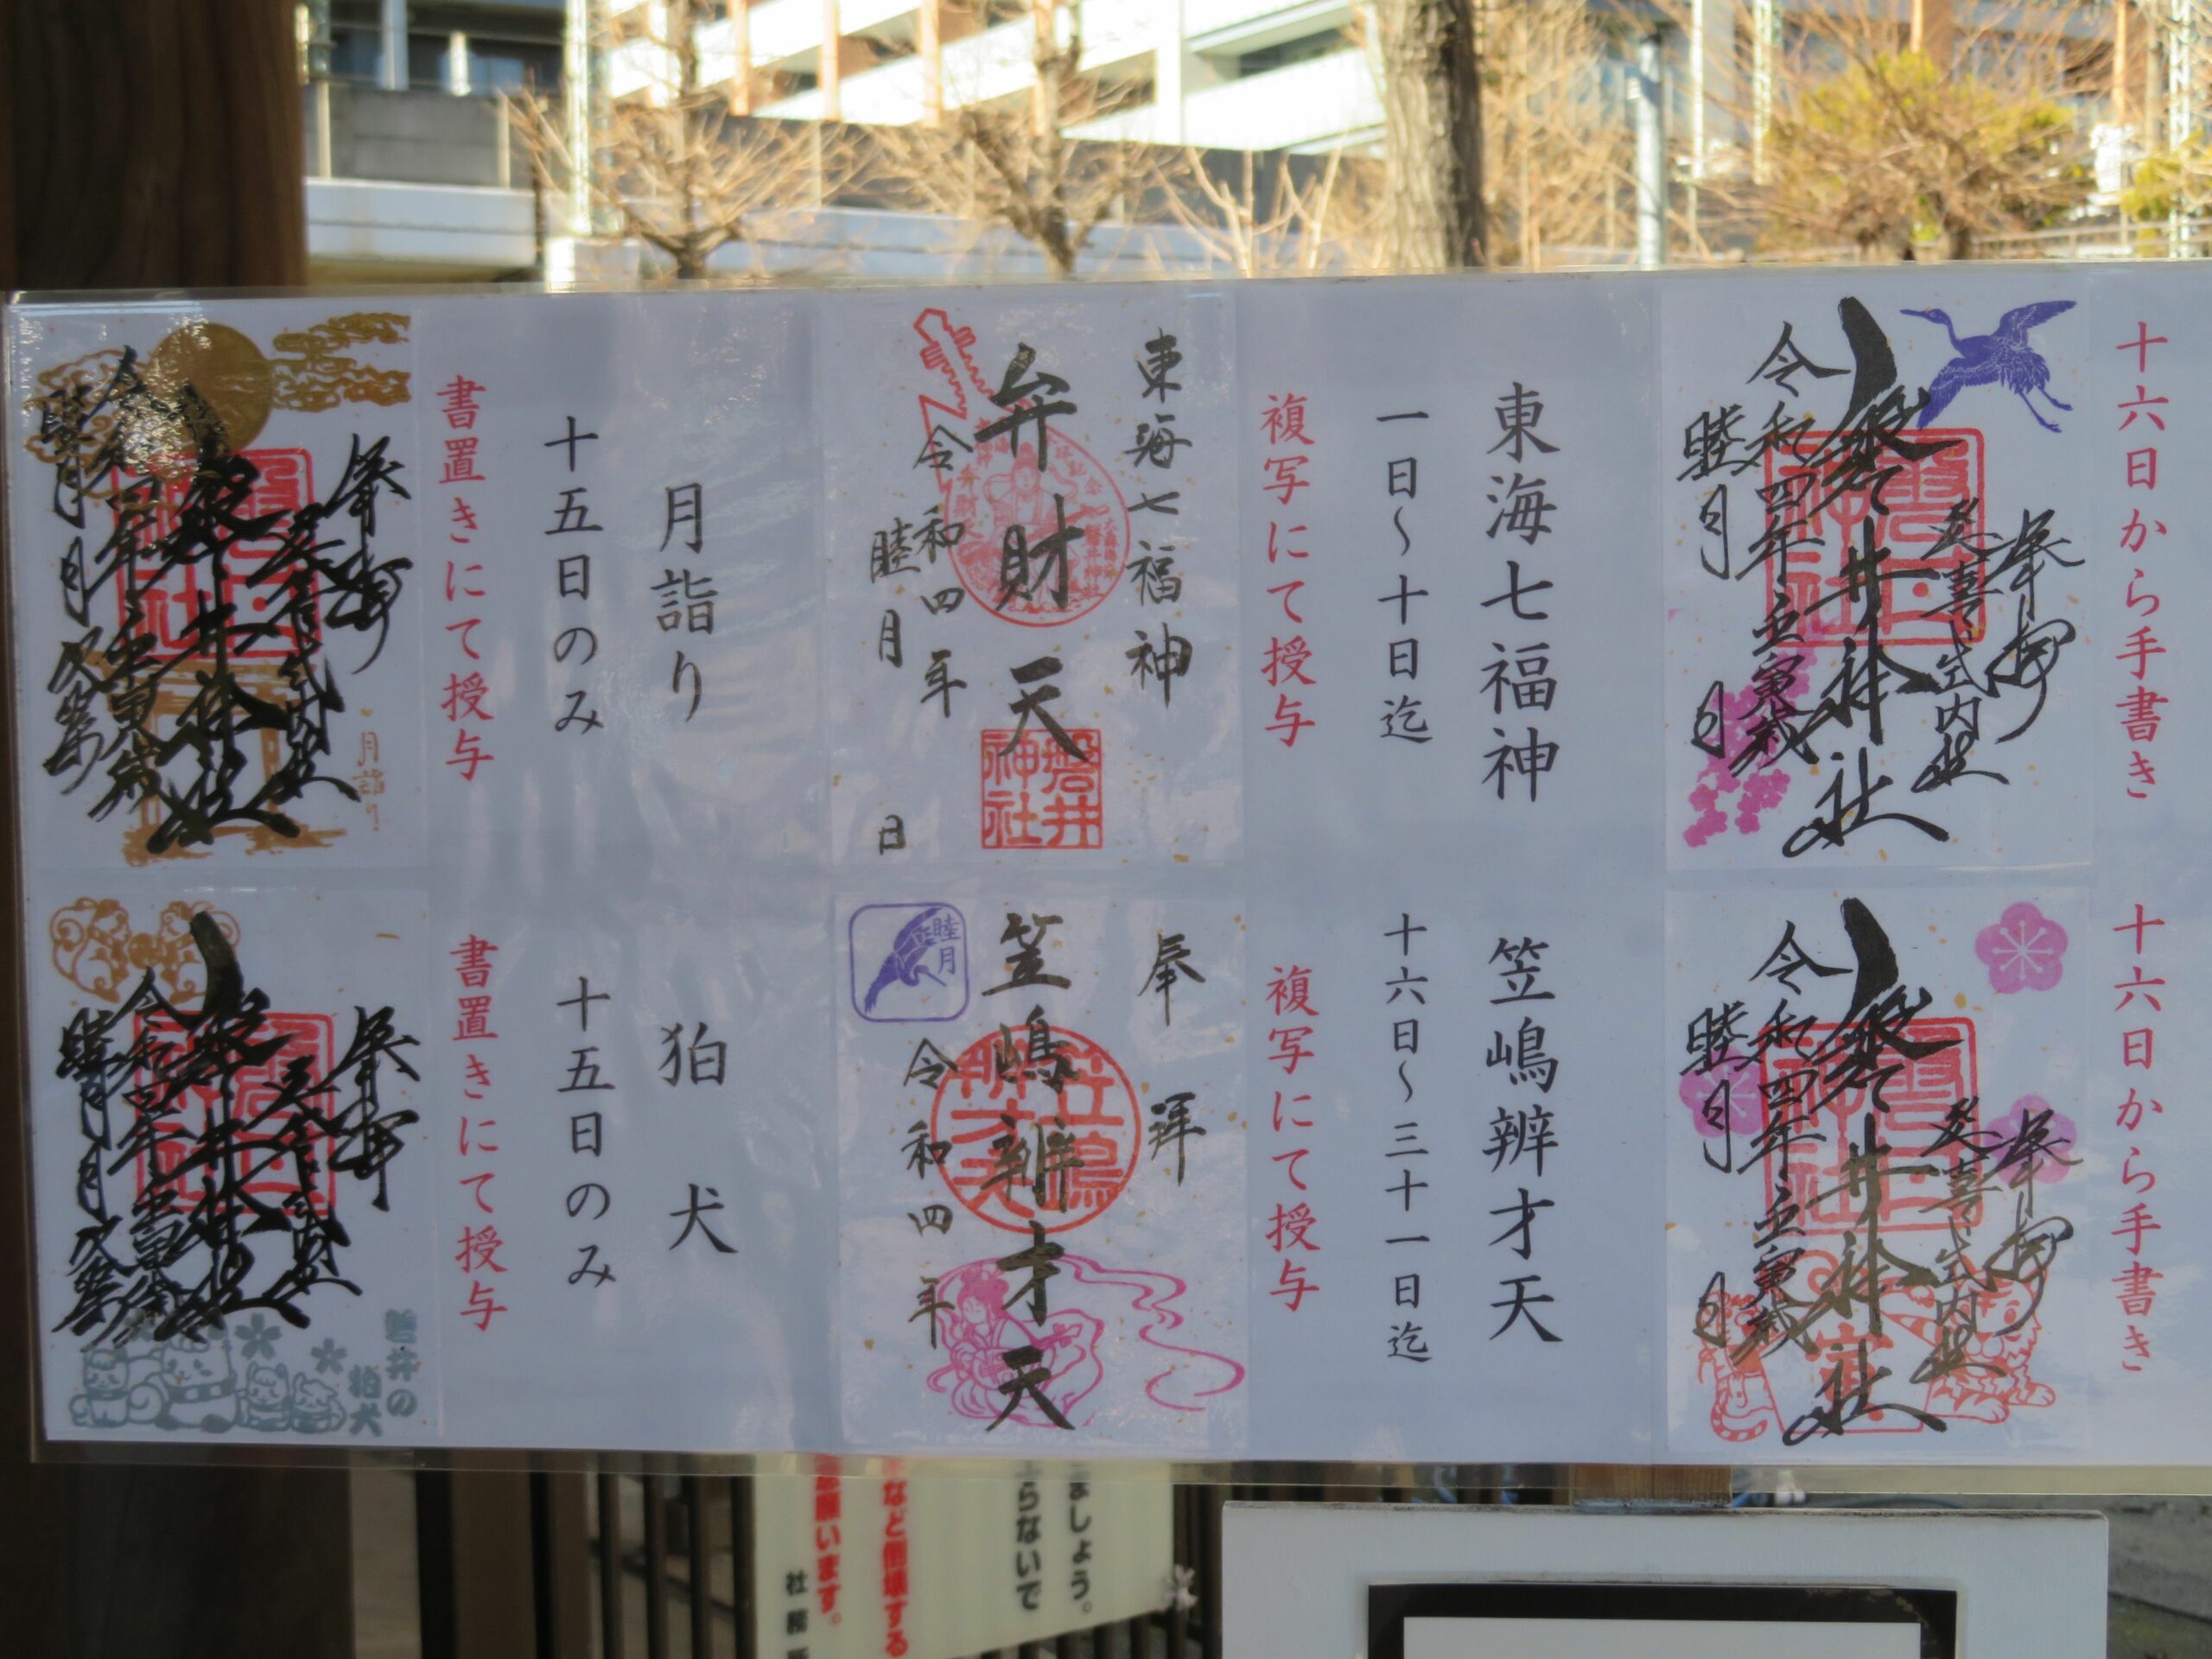 十六日から手書き
奉拝
延喜式内社
磐井神社
令和四年壬寅歳
睦月
日
東海七福神
一日～十日迄
複写にて授与
東海七福神
弁財天
令和四年
睦月
日
磐井
神社
月詣り
十五日のみ
書置きにて授与
奉拝
延喜式内社
磐井神社
令和四年壬寅歳
睦月
月詣り
十六日から手書き
奉拝
延喜式内社
磐井神社
令和四年壬寅歳
睦月
日
笠嶋辨才天
十六日～三十一日迄
複写にて授与
奉拝
笠嶋辨才天
令和四年
睦月
狛犬
十五日のみ
書置きにて授与
奉拝
磐井神社
令和四年
睦月
磐井の
狛犬
ましょう。
らないで
など
お願います。